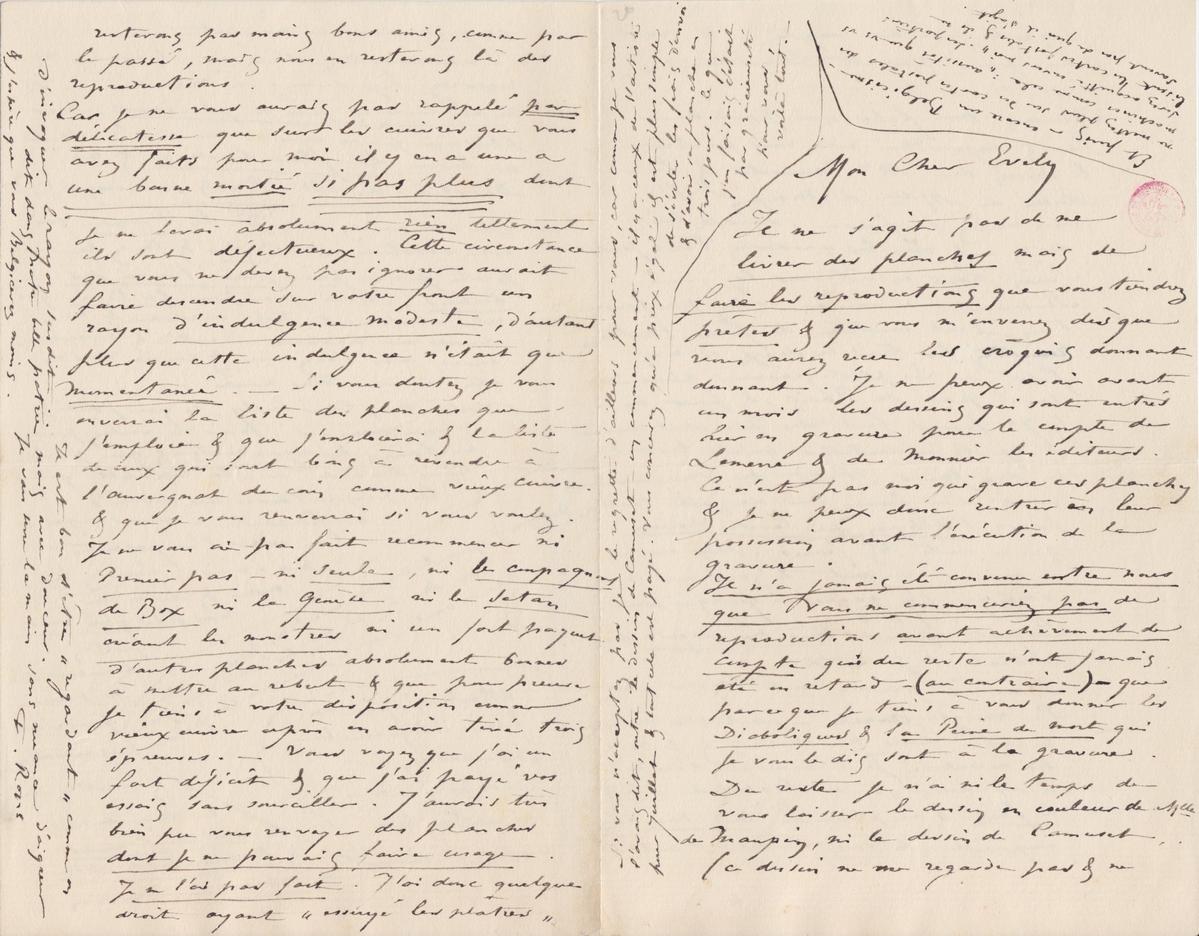 Mon Cher Evely
Il ne s'agit pas de me
livrer des planches mais de
faire les reproductions que vous tiendrez
prêtes & que vous m'enverrez dès que
vous aurez reçu les croquis donnant
donnant. Je ne peux avoir avant
un mois les dessins qui sont entrés
hier en gravure pour le compte de
Lemerre & de Monnier les éditeurs.
Ce n'est pas moi qui grave ces planches
& je ne peux donc rentrer en leur
possession avant l'exécution de la
gravure.
Il n'a jamais été convenu entre nous
que vous ne commenceriez pas de
reproductions avant achèvement de
compte qui du reste n'ont jamais
été en retard – (au contraire) – que
parce que je tiens à vous donner les
Diaboliques & la Peine de mort qui
je vous le dis sont à la gravure.
Du reste je n'ai ni le temps de
vous laisser le dessin en couleur de Mlle
de Maupin, ni le dessin de Camuset.
(ce dessin ne me regarde pas & ne
Si vous n'acceptez pas je le regrette d'ailleurs pour vous, car comme je vous
l'avais dit, outre le dessin de Camuset en commencement – il y a ceux de l'artiste
pour Guillot & tout cela est payé. Vous concevez qu'à prix égal il est plus simple
d'éviter les frais d'envoi
& d'avoir sa planche en
trois jours. Ce que
j'en faisais c'était
par gracieuseté
pour vous!
voilà tout.
Et puis
encore un
Belgicisme!
resterons pas moins bons amis, comme par
le passé, mais nous en resterons là des
reproductions.
Car je ne vous aurais pas rappelé par
délicatesse que sur les cuivres que vous
avez faits pour moi il y en a une a
une bonne moitié si pas plus dont
je ne ferai absolument rien tellement
ils sont défectueux. Cette circonstance
que vous ne devez pas ignorer aurait
faire descendre sur votre front un
rayon d'indulgence modeste, d'autant
plus que cette indulgence n'était que
momentané. — Si vous doutez je vous
enverrai la liste des planches que
j'emploie & que j'emploierai & la liste
de ceux qui sont bons à revendre à
l'auvergnat du coin comme vieux cuivre.
& que je vous renverrai si vous voulez.
Je ne vous ai pas fait recommencer ni
Premier pas – ni Seule, ni les compagnons
de Box ni la Genèse ni le Satan
créant les monstres ni un fort paquet
d'autres planches absolument bonnes
à mettre au rebut & que pour preuve
je tiens à votre disposition comme
vieux cuivre après en avoir tiré trois
épreuves. — Vous voyez que j'ai un
fort déficit & que j'ai payé vos
essais sans sourciller. J'aurais très
bien pu vous renvoyer des planches
dont je ne pouvais faire usage.
Je ne l'ai pas fait. J'ai donc quelque
droit ayant « essuyé les plâtres »
d'invoquer le rayon susdit. Il est bon d'être « regardant » comme on
dit dans notre belle patrie, mais avec douceur. Je vous serre la main sans nuance d'aigreur
& j'espère que vous Belgicerez moins.
F. Rops